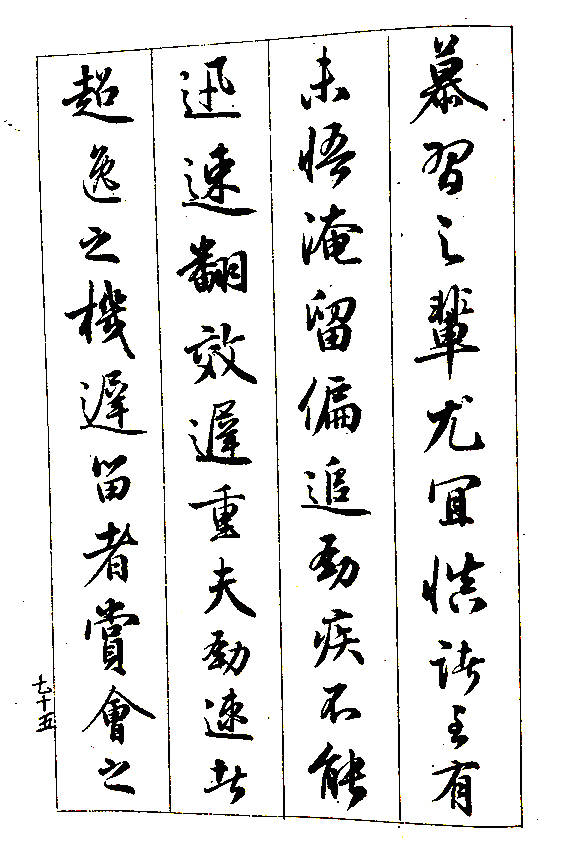 慕習之輩尤宜慎諸至有
未悟淹留偏追勁疾不能
迅速翻效遲重夫勁速者
超逸之機遲留者賞會之
七十五